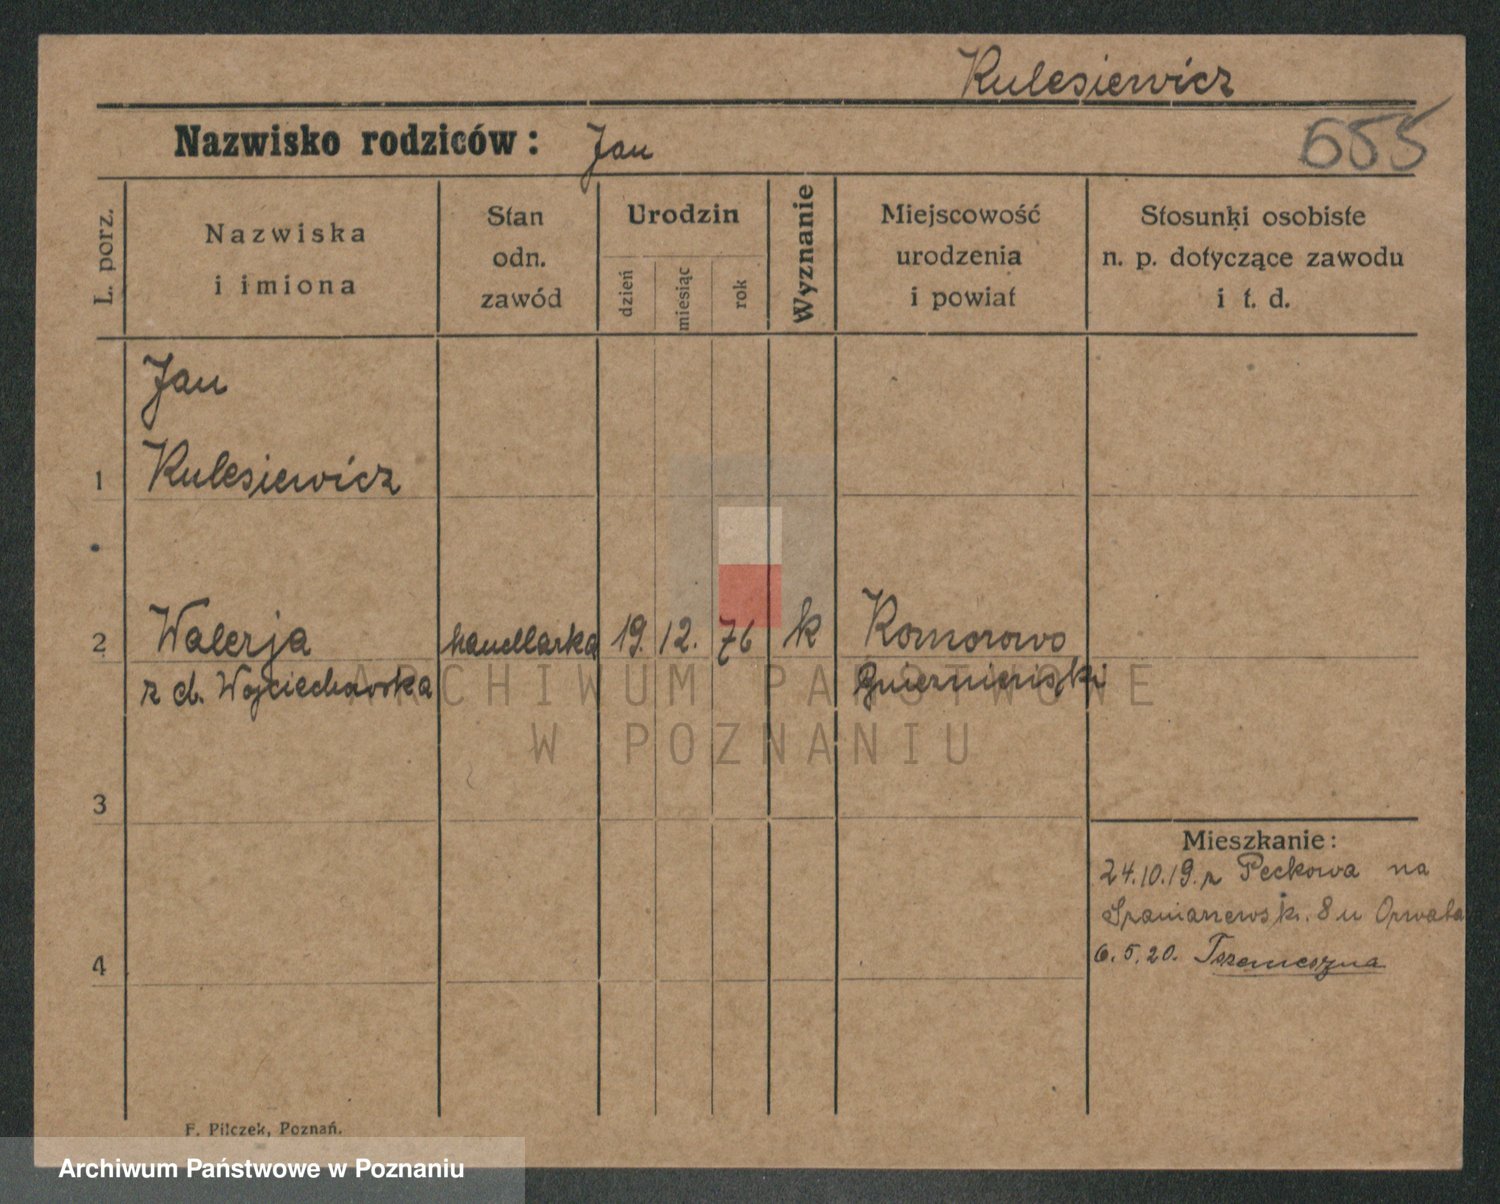 Kulesiewicz
Nazwisko rodziców: Jan
655
L. porz.
Nazwiska
i imiona
Stan
odn.
zawód
Urodzin
dzień
miesiąc
rok
Wyznanie
Miejscowość
urodzenia
i powiat
Stosunki osobiste
n. p. dotyczące zawodu
i t. d.
Jan
1 Kulesiewicz
2 Walerja handlarka 19. 12. 76 k Komorowo
z d. Wojciechowska Gnieznieński
ARCHIWUM PAŃSTWOWE
W POZNANIU
3
Mieszkanie:
24.10.19. z Peckowa na
8 u
4
6.5.20. Tszemeszna
F. Pilczek, Poznań.
Archiwum Państwowe w Poznaniu